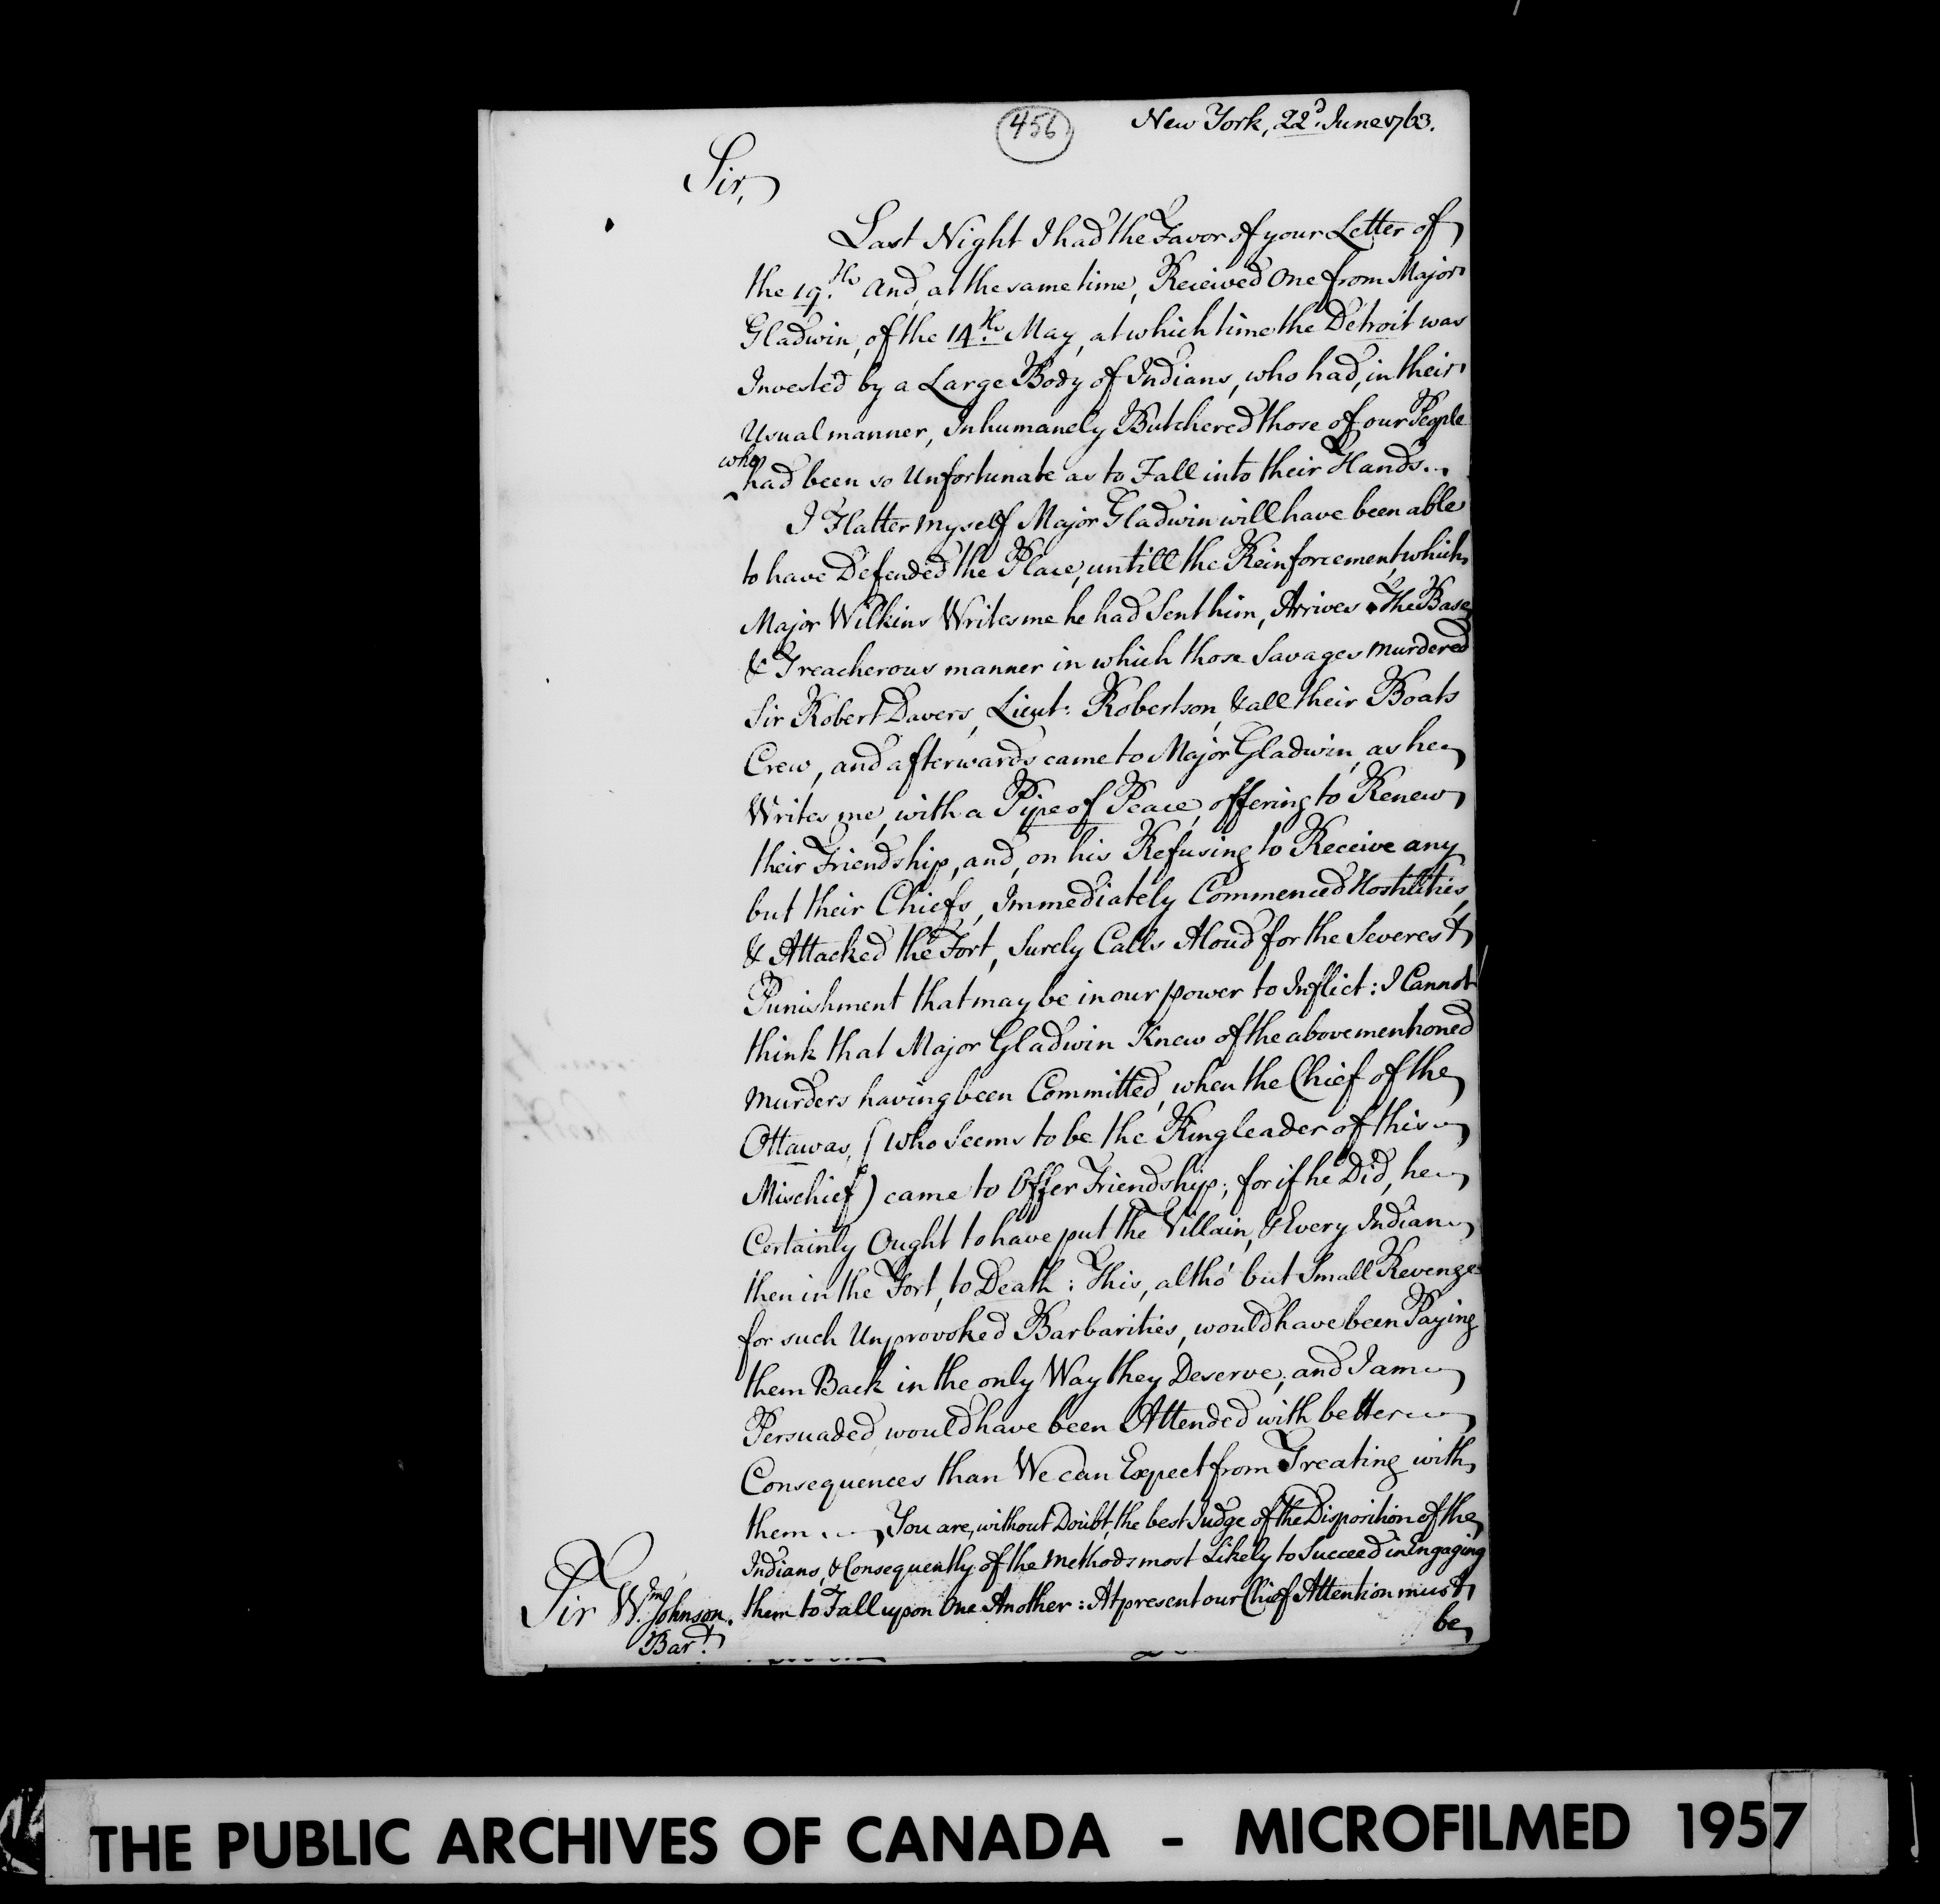 456
New York, 22d. June 1763.
Sir,
Last Night I had the Favor of your Letter of
the 19.th And, at the same time, Received One from Major
Gladwin, of the 14.th May, at which time the Detroit was
Invested by a Large Body of Indians, who had, in their
Usual manner, Inhumanely Butchered those of our People
who
^had been so Unfortunate as to Fall into their Hands.
I Flatter myself Major Gladwin will have been able
to have Defended the Place, untill the Reinforcement, which
Major Wilkins Writes me he had Sent him, Arrives. The Base
& Treacherous manner in which those Savages murdered
Sir Robert Davers, Lieut: Robertson, & all their Boats
Crew, and afterwards came to Major Gladwin, as he
Writes me, with a Pipe of Peace, offering to Renew
their Friendship, and, on his Refusing to Receive any
but their Chiefs, Immediately Commenced Hostilities,
& Attacked the Fort, Surely Calls Aloud for the Severest
Punishment that may be in our power to Inflict: I Cannot
think that Major Gladwin Knew of the abovementioned
murders having been Committed, when the Chief of the
Ottawas, (who Seems to be the Ringleader of this
Mischief) came to Offer Friendship; for if he Did, he
Certainly Ought to have put the Villain, & Every Indian
then in the Fort, to Death: This, altho' but Small Revenge
for such Unprovoked Barbarities, would have been Paying
them Back in the only Way they Deserve; and I am
Persuaded would have been Attended with better
Consequences than We can Expect from Treating with
them. You are, without Doubt, the best Judge of the Disposition of the
Indians, & Consequently of the methods most Likely to Succeed in Engaging
them to Fall upon One Another: At present our Chief Attention must
be
Sir Wm. Johnson.
Bart.
THE PUBLIC ARCHIVES OF CANADA - MICROFILMED 1957